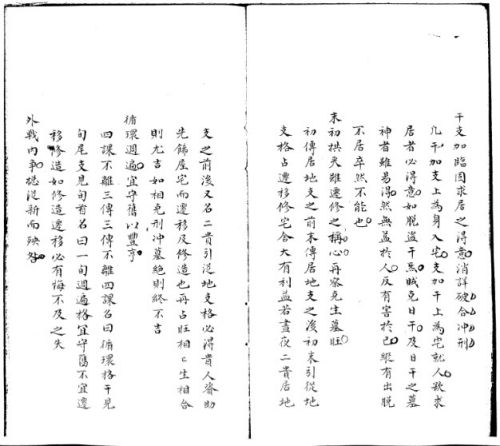 干支加臨因求居之得意消詳破合冲刑
凡干加支上為身入宅支加干上為宅就人欵求
居者必得意如脱盜干賊克日干及日干之墓
神者雖易得然無益於人反有害於己縱有出脱
不居卒然不能也
末初拱夹雖遷修之稱心再察克生墓旺
初傳居地支之前末傳居地支之後初末引從地
支格占遷移修宅舍大有利益若晝夜二貴居地
支之前後又名二貴引從地支格必得貴人資助
先飾屋宅而遷移及修造也再占旺相匕生相合
則尤吉如相克刑冲墓絕則終不吉
循環週遍宜守舊以豐亨
四課不離三傳三傳不離四課名曰循環格干見
旬尾支見旬首名曰一旬週遍格宜守舊不宜遷
移修造如修造遷移必有悔不及之失
外戰内爭從新而殃咎